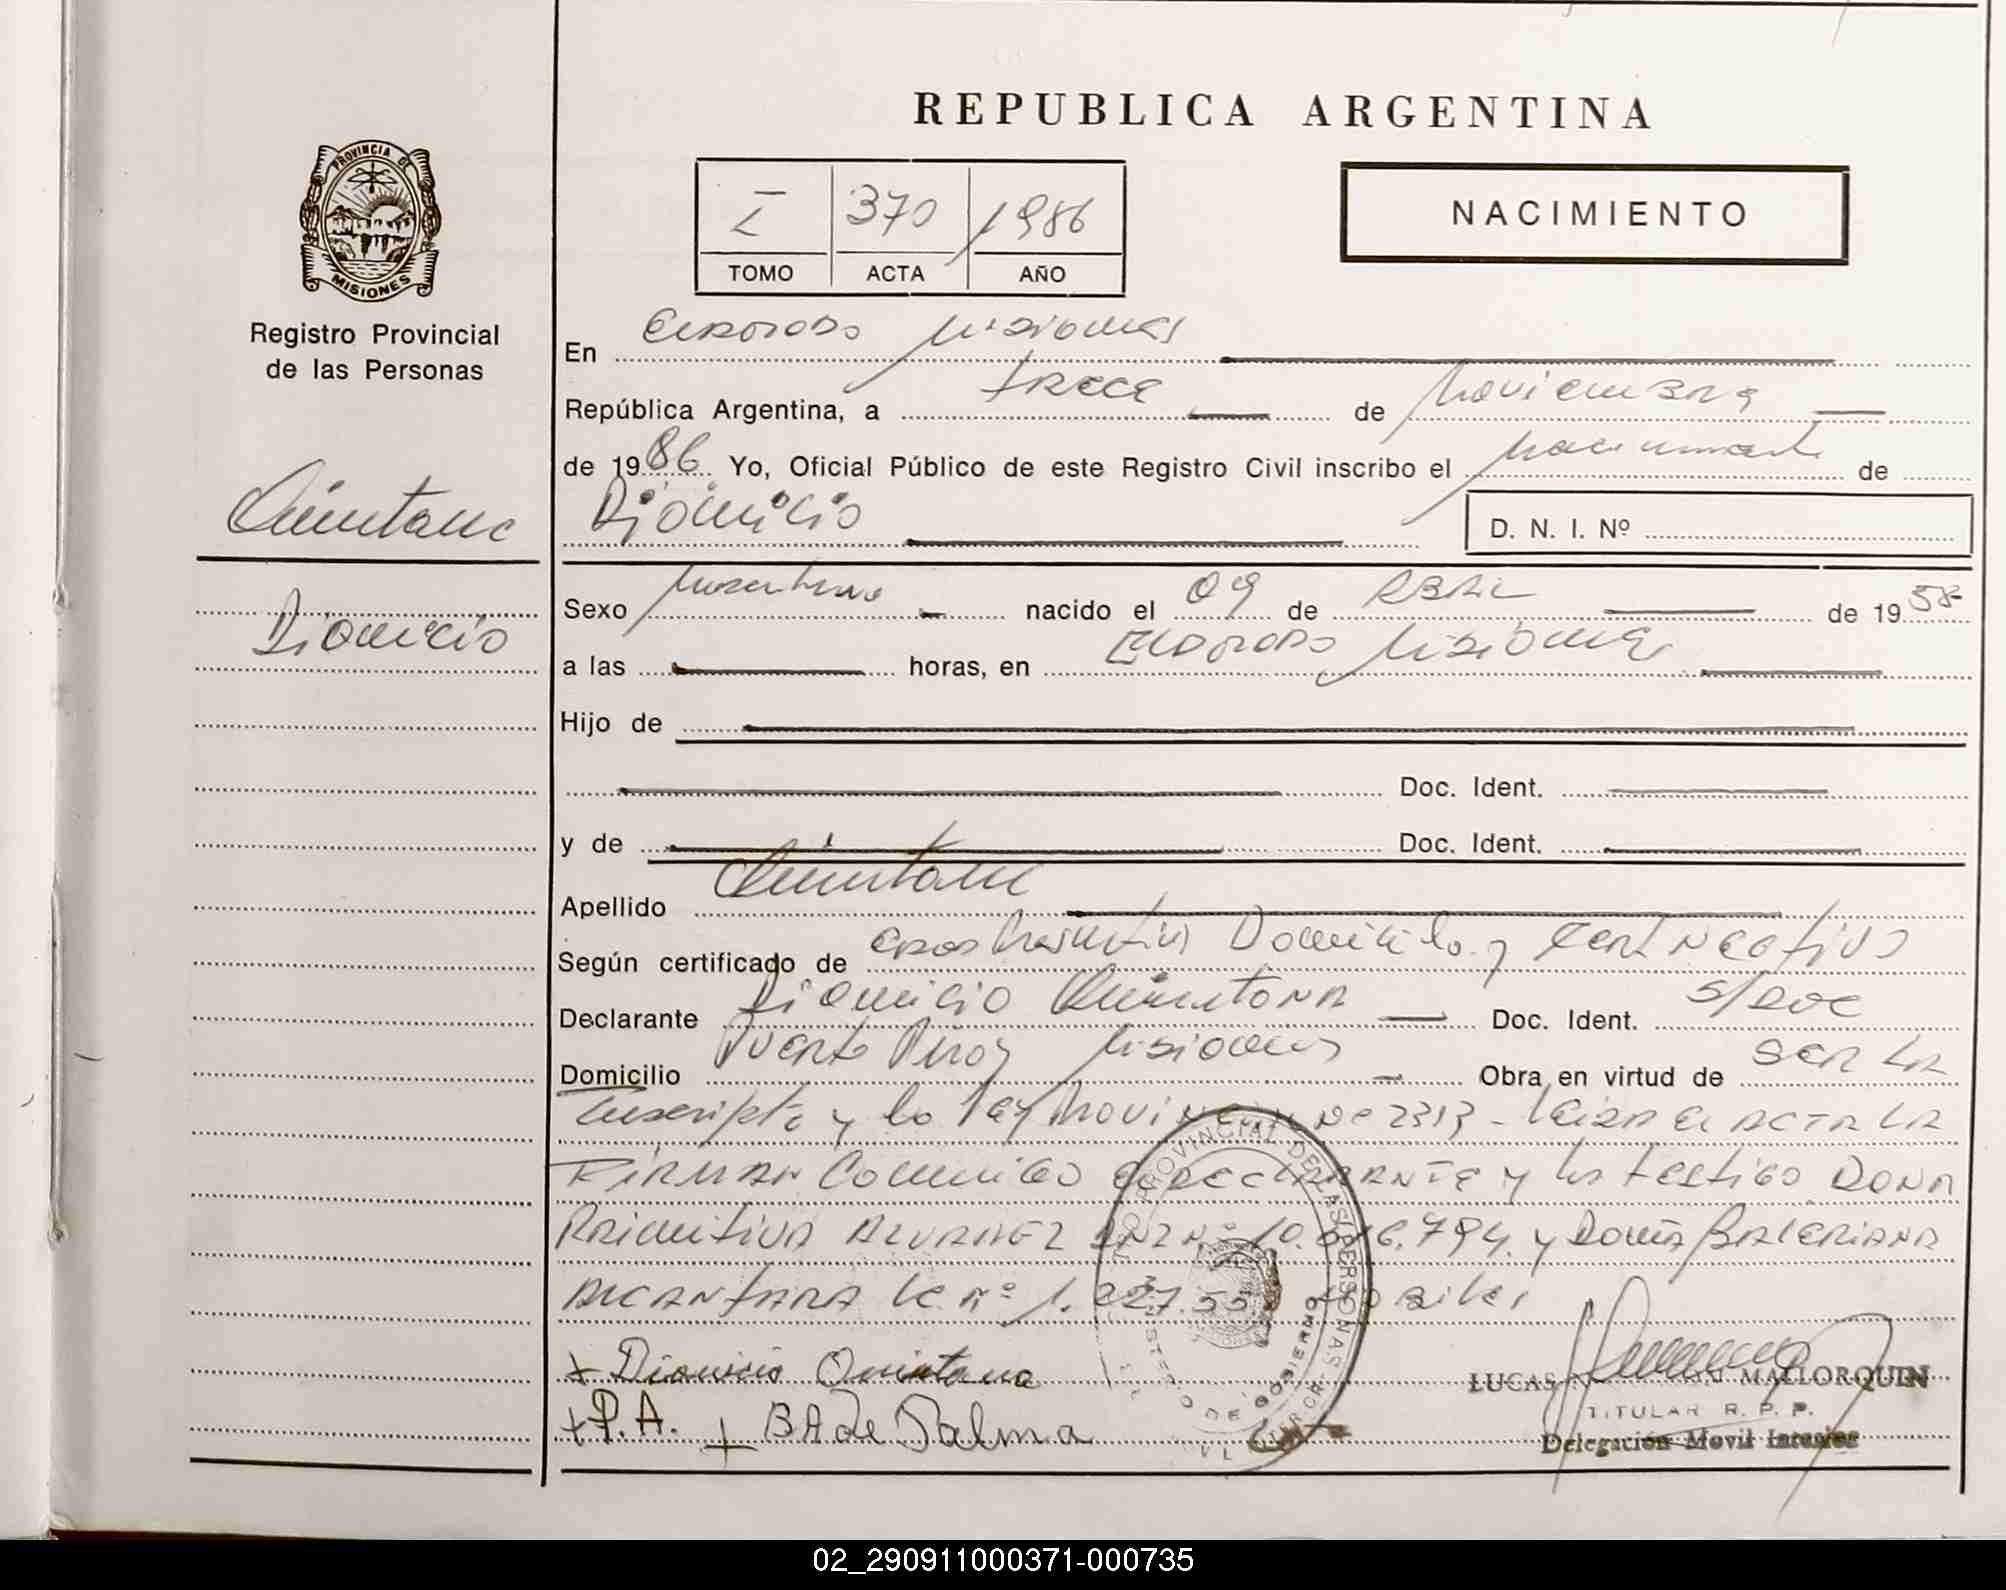 REPUBLICA ARGENTINA
PROVINCIA DE
MISIONES
Registro Provincial
de las Personas
I 370 1986
TOMO ACTA AÑO
NACIMIENTO
En Eldorado Misiones
República Argentina, a trece de Noviembre
de 1986 Yo, Oficial Público de este Registro Civil inscribo el nacimiento de
Quintana
Dionicio
D. N. I. Nº
Dionicio
Sexo masculino nacido el 09 de ABRIL de 1958
a las horas, en Eldorado Misiones
Hijo de
Doc. Ident.
y de Doc. Ident.
Apellido Quintana
Según certificado de Domicilo y
Declarante Dionicio Quintana Doc. Ident. S/Doc
Domicilio Puerto Piray Misiones Obra en virtud de SER LA
Inscripta y la Ley Provincial Nº 2313 - Leida el ACTA LA
FIRMAN Conmigo el DECLARANTE y los testigo DOÑA
Primitiva ALVAREZ DNI Nº 10. 794. y Doña BALERIANA
ALCANTARA LC. Nº 1.
+ Dionicio Quintana
+ P. A. + BA de Palma
LUCAS MALLORQUIN
TITULAR R. P. P.
Delegación Movil
PROVINCIAL DE LAS PERSONAS
DE GOBIERNO
02_290911000371-000735